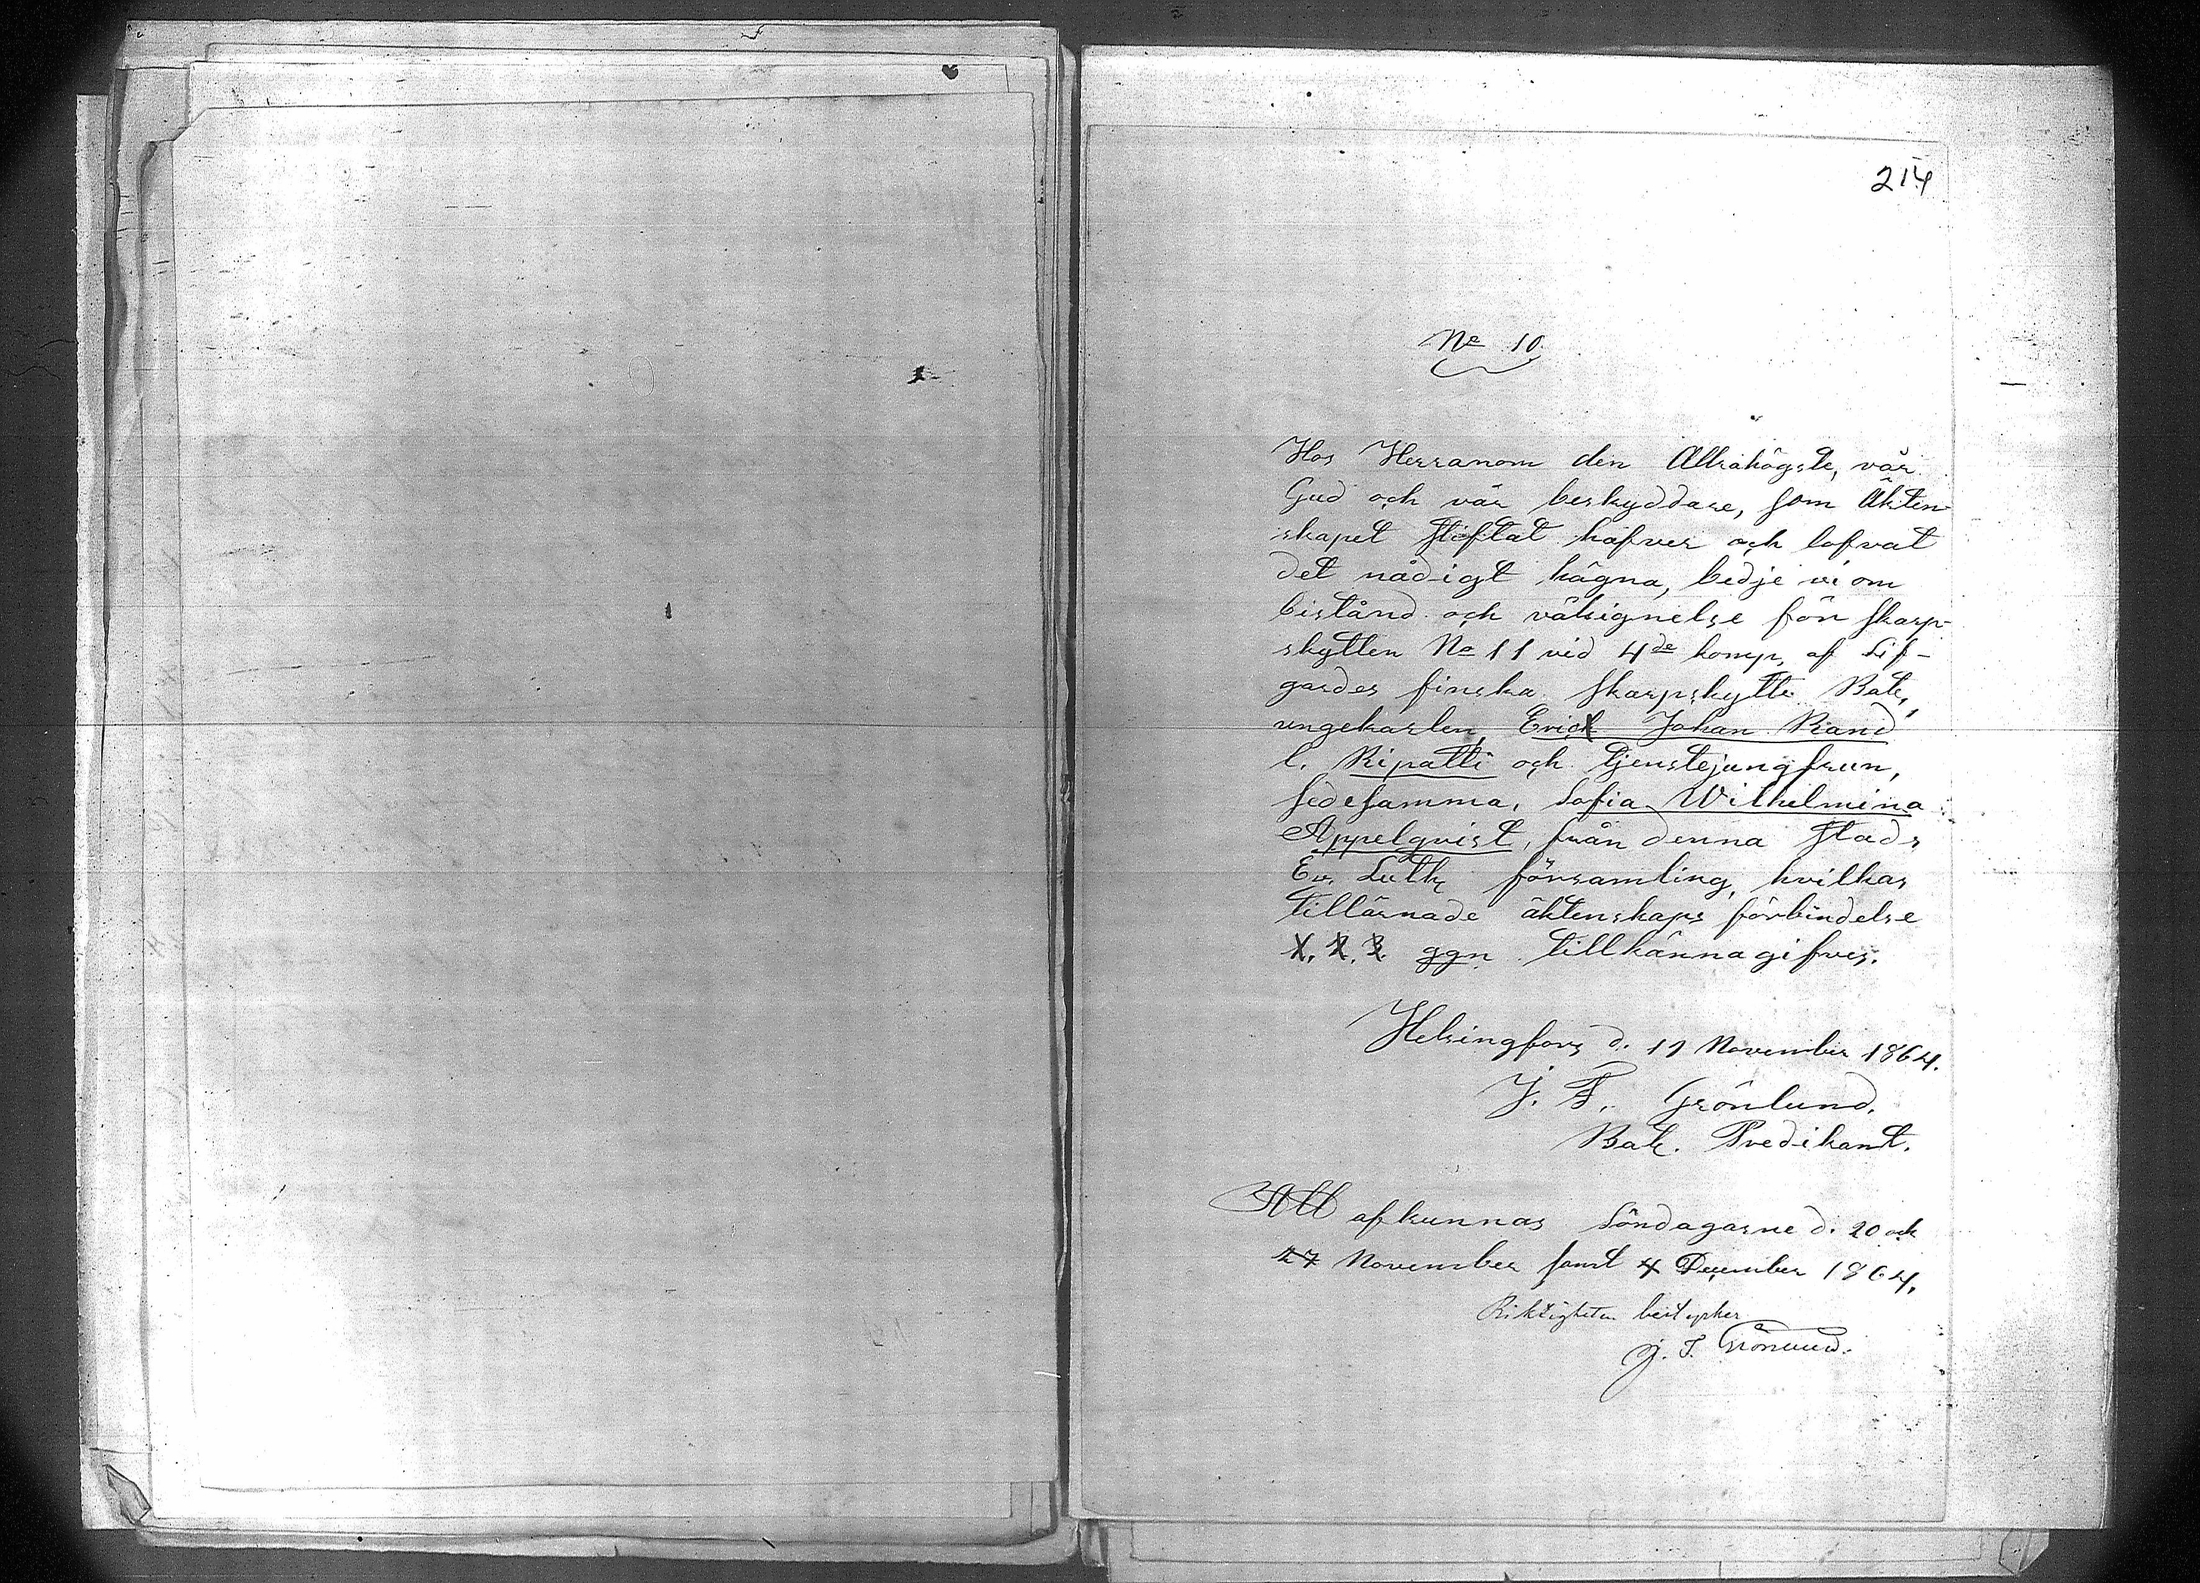 214
No 10.
Hos Herranom den Allrahögste, vår
Gud och vår beskyddare, som Äkten-
skapet stiftat hafver och lofvat
det nådigt hägna, bedje vi om
bistånd och välsignelse för skarp-
skytten No 11 vid 4de komp. af Lif-
gardes finska Skarpskytte Bat.,
ungekarlen, Erick Johan Rand
l. Ripatti och tjenstejungfrun,
sedesamma, Sofia Wilhelmina
Appelqvist, från denna stads
Ev. Luth. församling, hvilkas
tillärnade äktenskaps förbindelse
1. 2. 3. ggn tillkännagifves.
Helsingfors d. 19 November 1864.
J. F. Grönlund.
Bat. Predikant.
Att afkunnas Söndagarne d. 20 och
27 November samt 4 December 1864.
Riktigheten bestyrker
J. F. Grönlund.